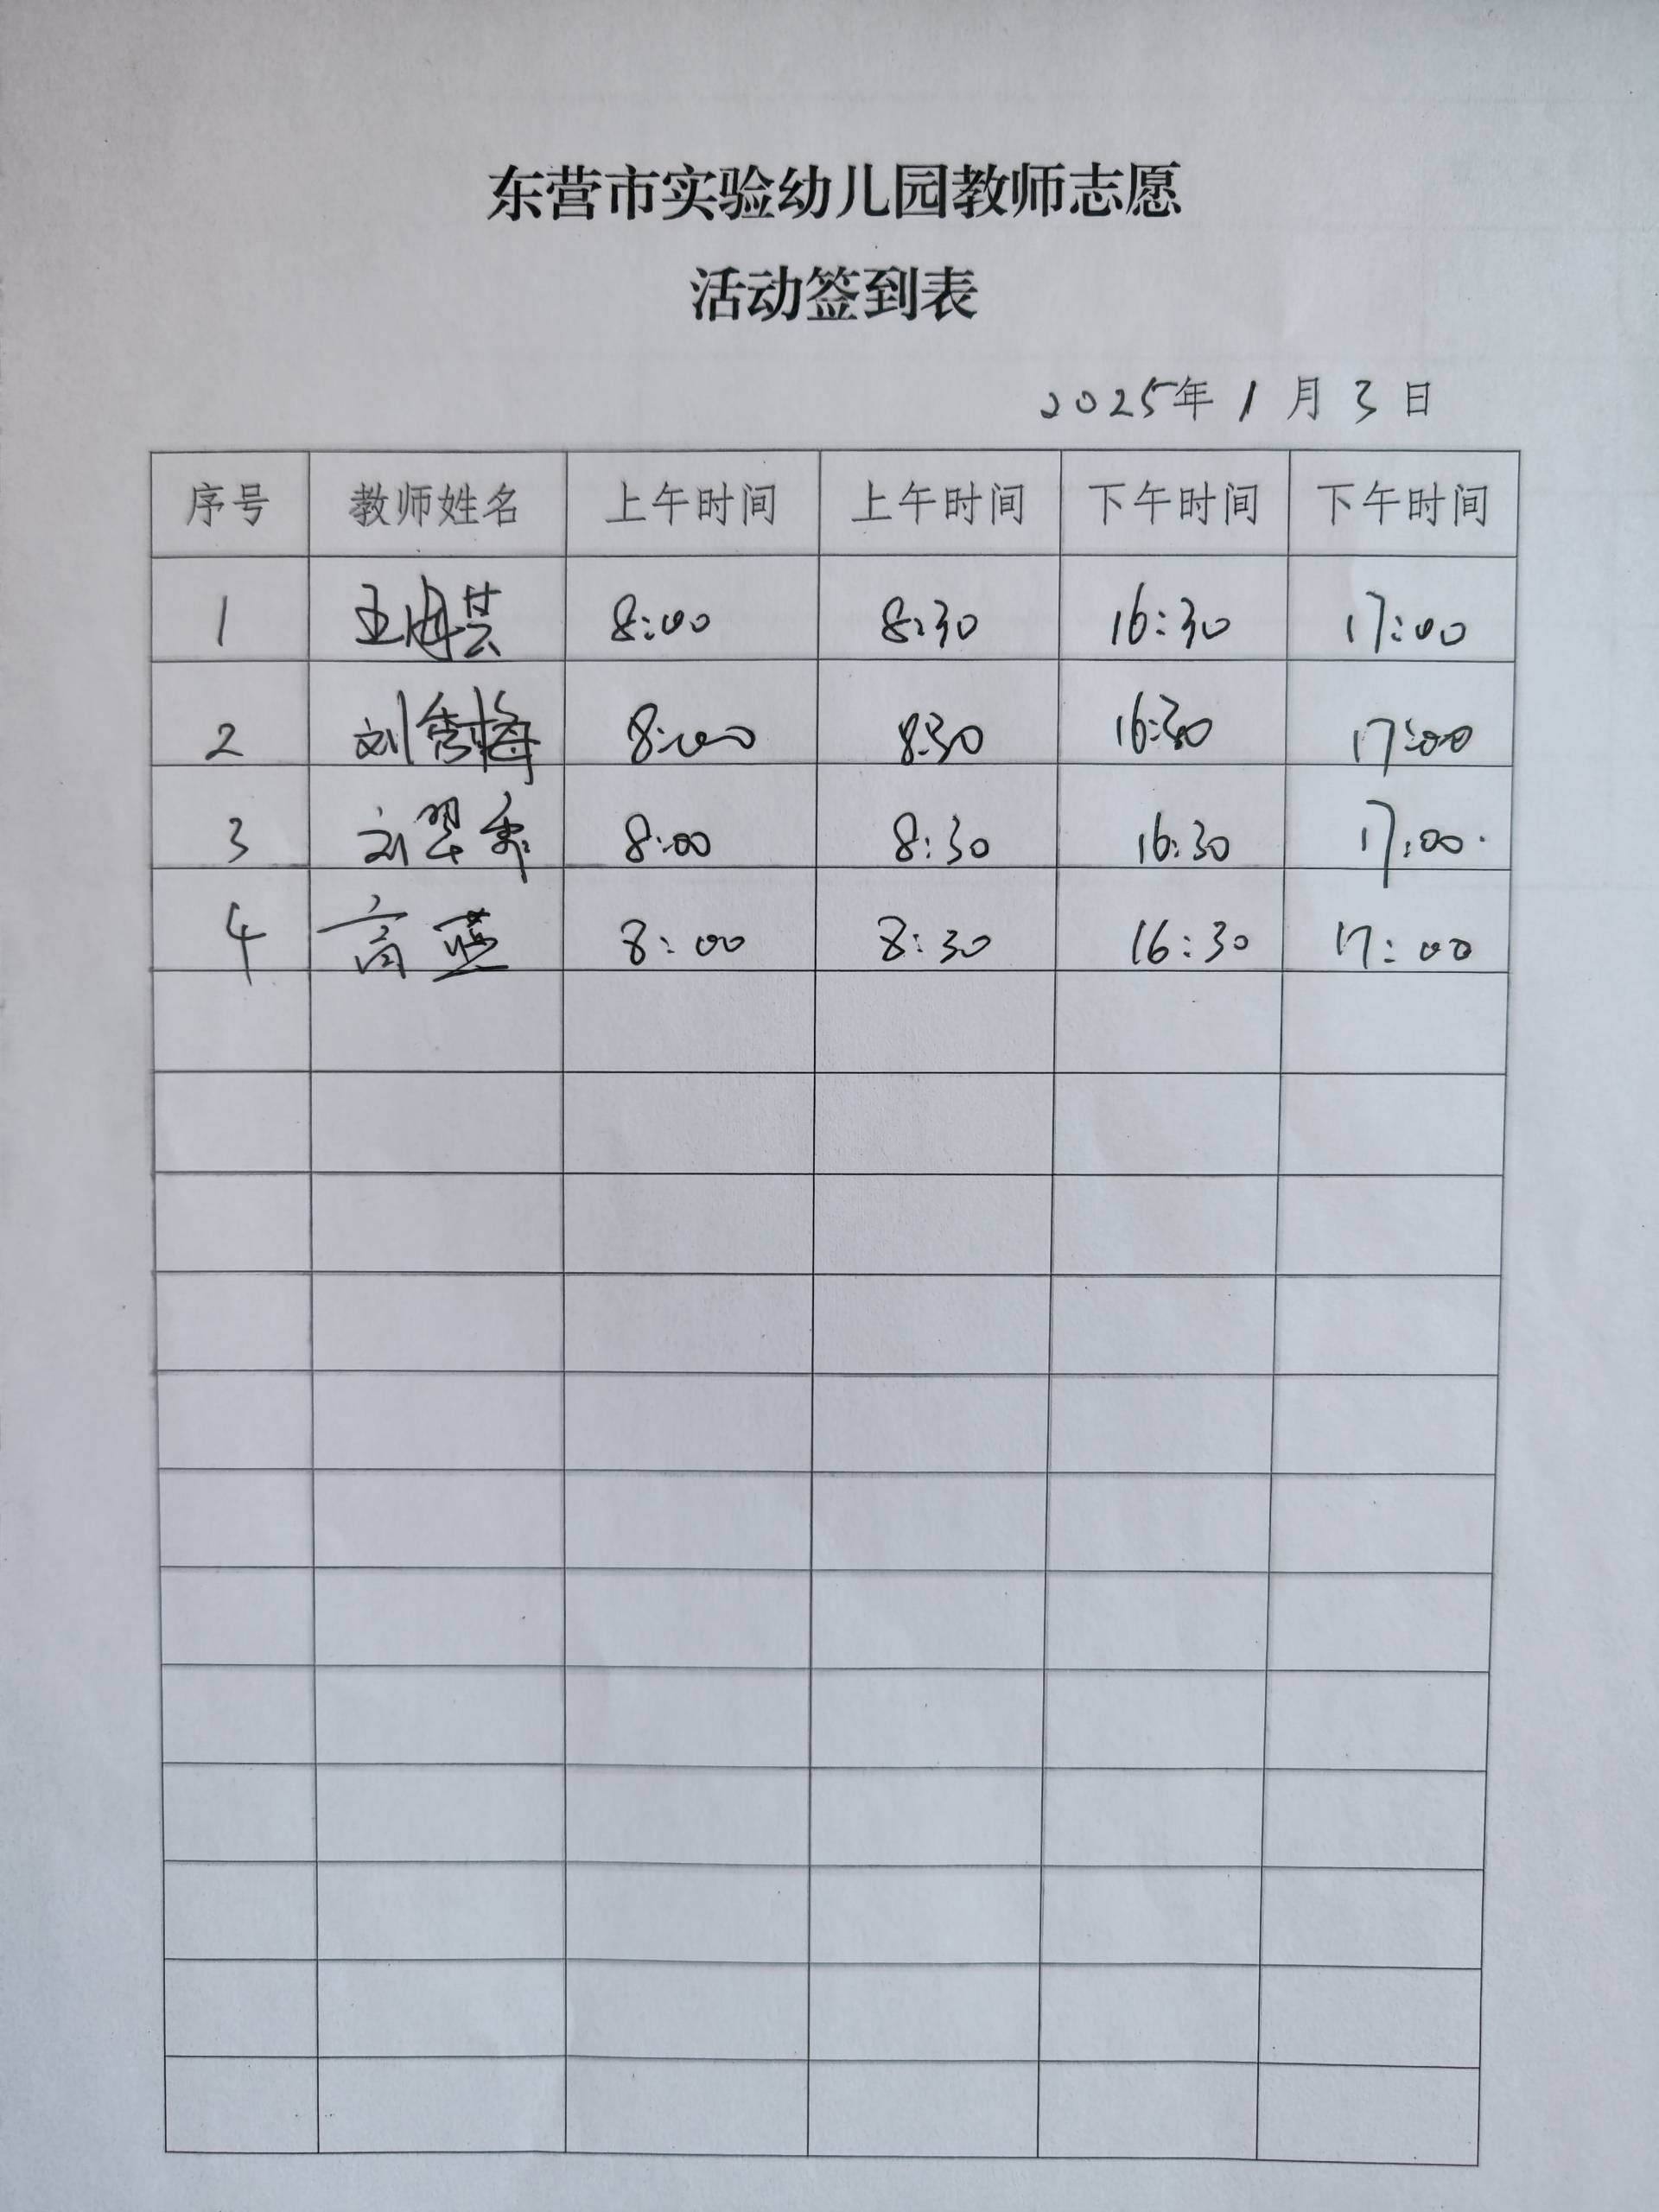 东营市实验幼儿园教师志愿
活动签到表
2025年1月3日
序号 教师姓名 上午时间 上午时间 下午时间 下午时间
1 王海芸 8:00 8:30 16:30 17:00
2 刘秀梅 8:00 8:30 16:30 17:00
3 刘翠 8:00 8:30 16:30 17:00
4 高蓝 8:00 8:30 16:30 17:00